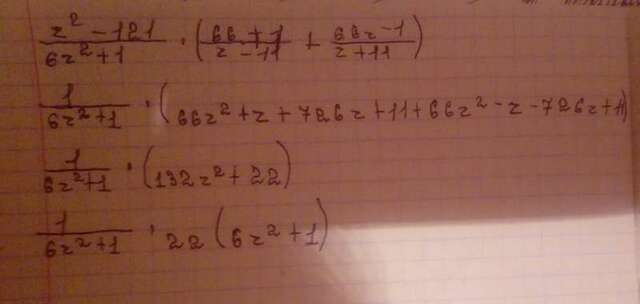 (z² − 121)/(6z² + 1) · ((66 + 1)/(z − 11) + (66z − 1)/(z + 11))
1/(6z² + 1) · (66z² + z + 726z + 11 + 66z² − z − 726z + 11)
1/(6z² + 1) · (132z² + 22)
1/(6z² + 1) · 22(6z² + 1)